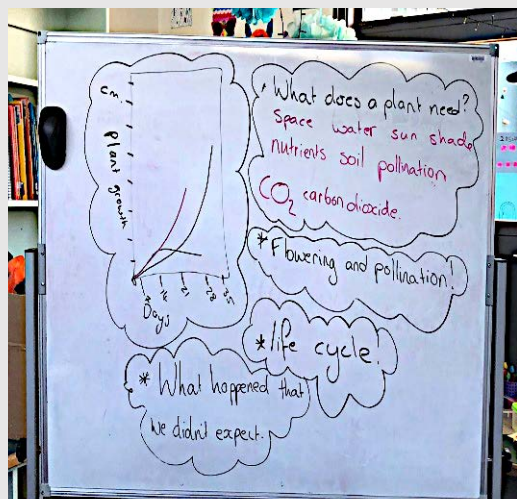 cm.
plant growth
7 14 21 28 35
Days
* What does a plant need?
Space water sun shade
nutrients soil pollination
CO2 carbon dioxide.
* Flowering and pollination!
* life cycle!
* What happened that
we didn't expect.